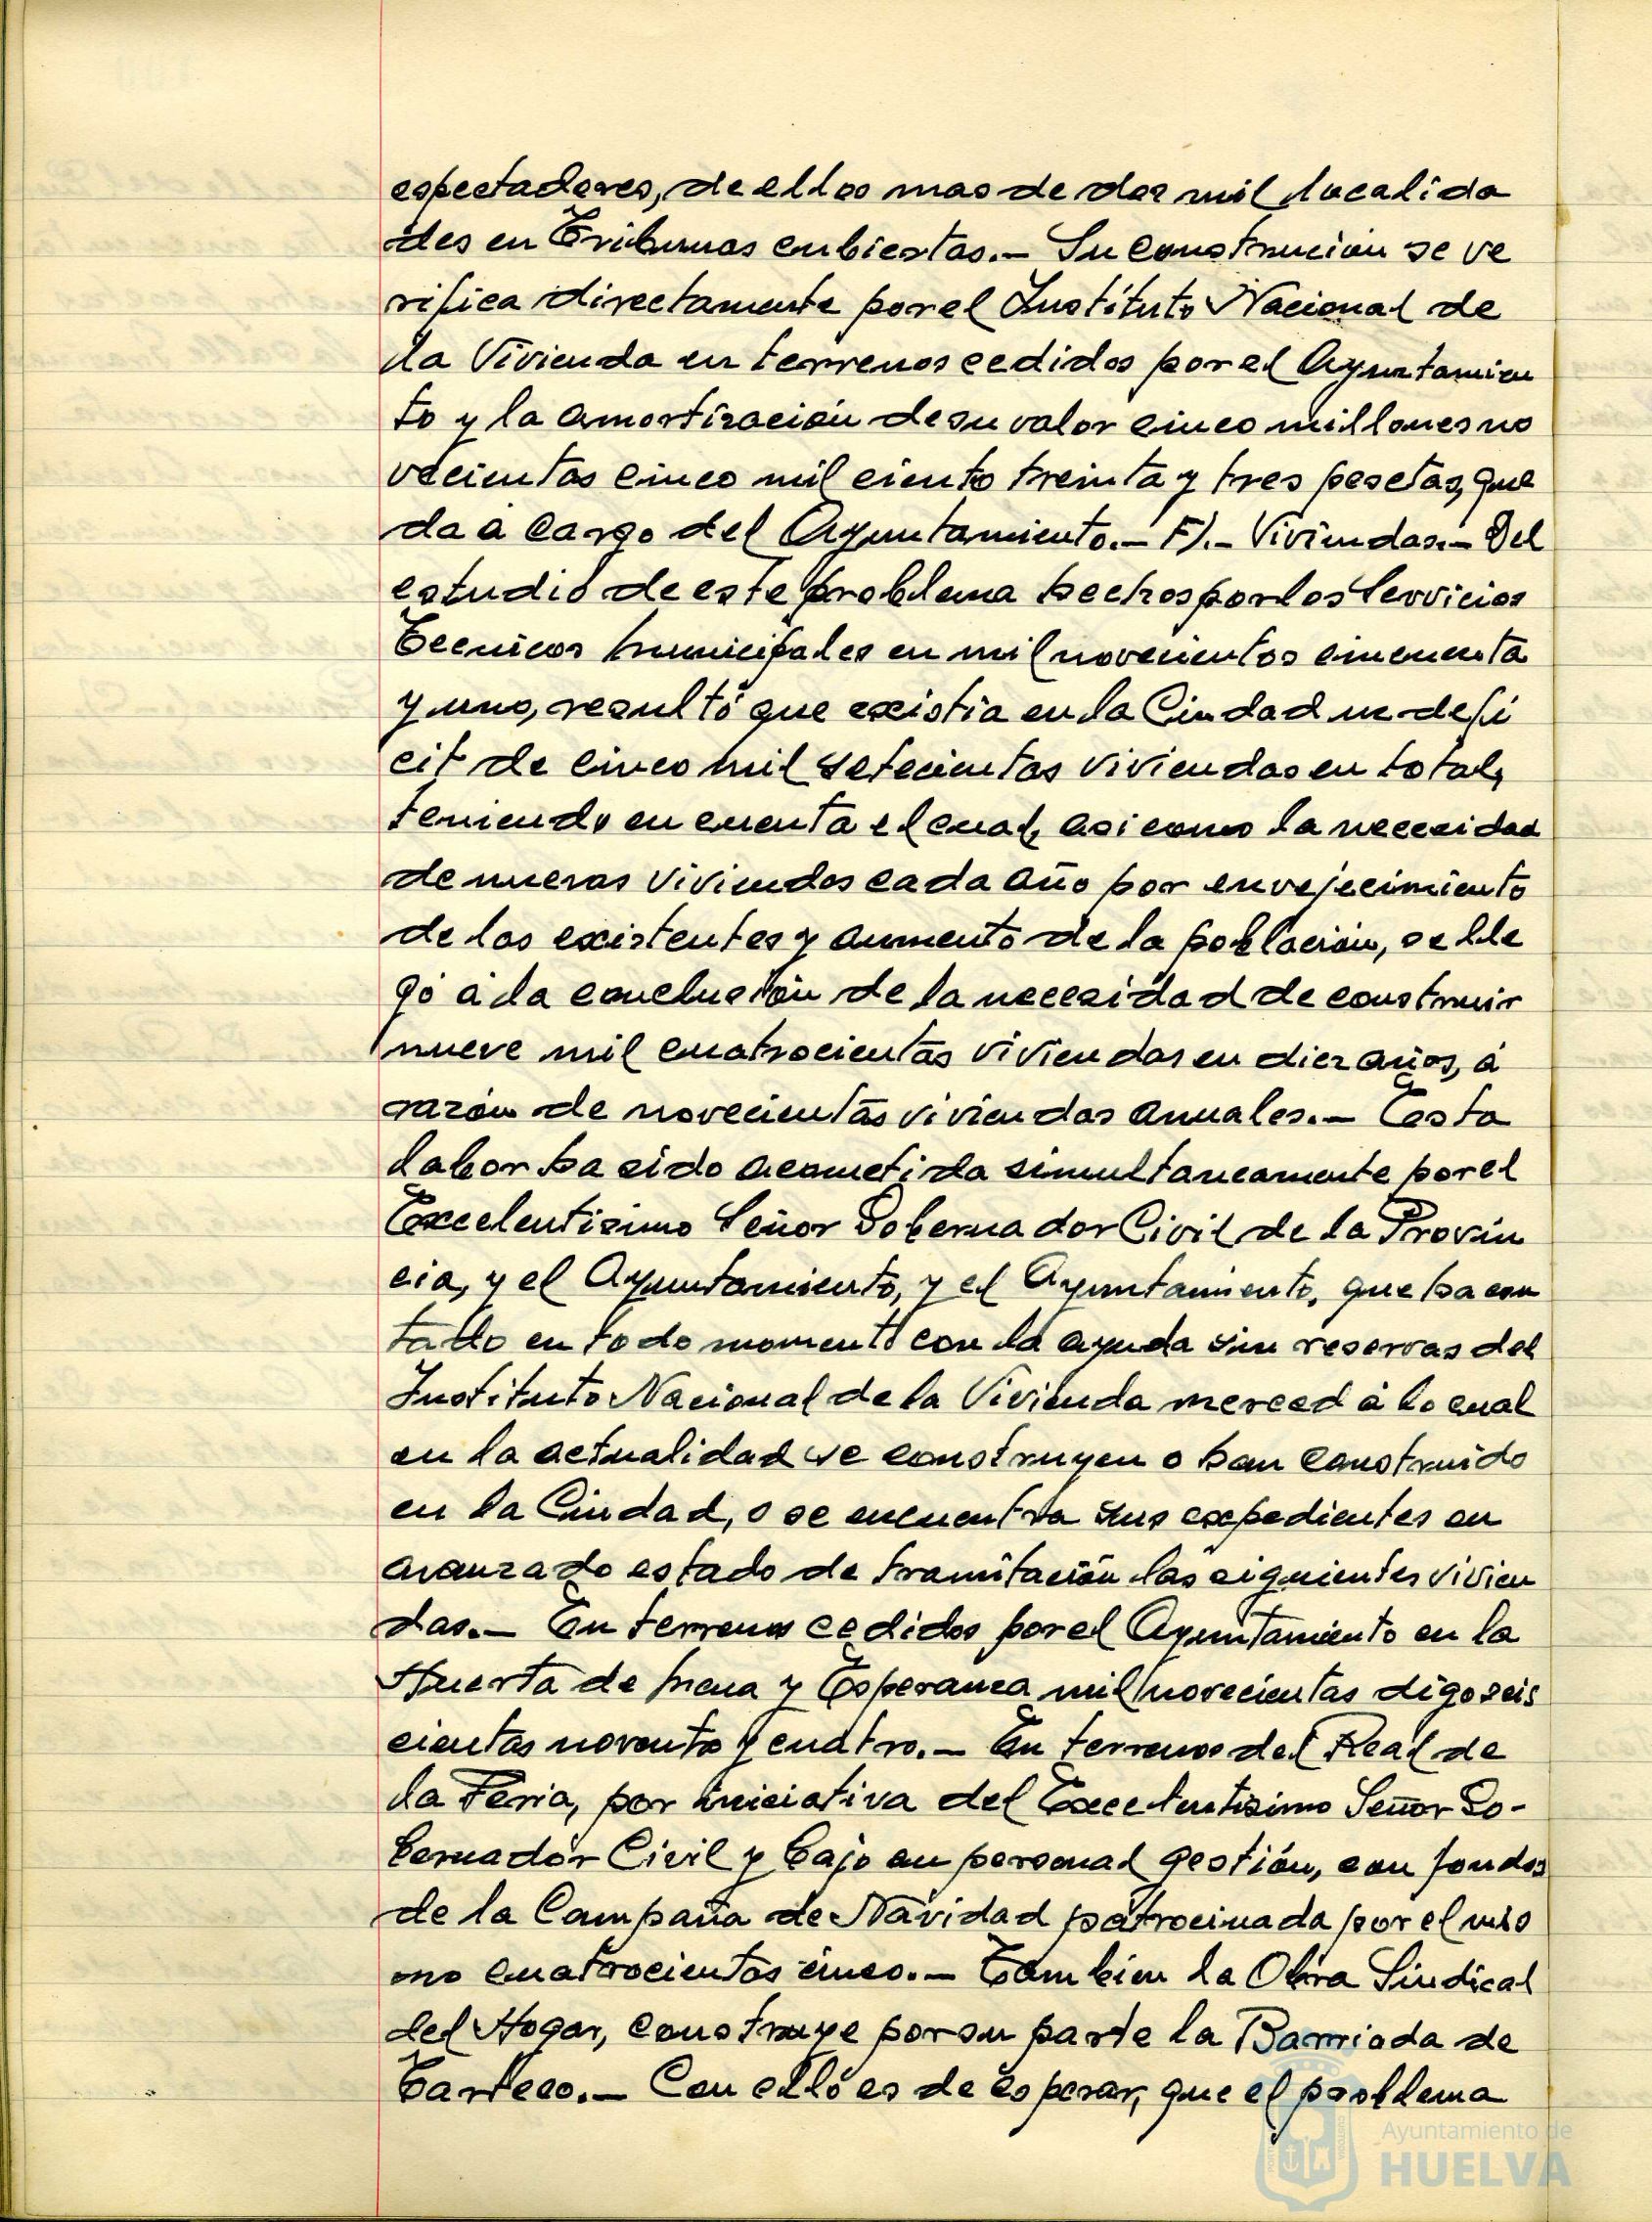 espectadores, de ellos mas de dos mil localida
des en Tribunas cubiertas.- Su construcion se ve
rifica directamente por el Instituto Nacional de
la Vivienda en terrenos cedidos por el Ayuntamien
to y la amortización de su valor cinco millones no
vecientas cinco mil ciento treinta y tres pesetas, que
da á cargo del Ayuntamiento.- F).- Viviendas.- Del
estudio de este problema hechos por los Servicios
Tecnicos Municipales en mil novecientos cincuenta
y uno, resultó que existia en la Ciudad un defi
cit de cinco mil setecientas viviendas en total,
teniendo en cuenta el cual, asi como la necesidad
de nuevas viviendas cada año por envejecimiento
de las existentes y aumento de la población, se lle
gó á la conclusión de la necesidad de construir
nueve mil cuatrocientas viviendas en diez años, á
razón de novecientas viviendas anuales.- Esta
labor ha sido acometida simultaneamente por el
Excelentisimo Señor Gobernador Civil de la Provin
cia, y el Ayuntamiento, y el Ayuntamiento, que ha con
tado en todo momento con la ayuda sin reservas del
Instituto Nacional de la Vivienda merced á lo cual
en la actualidad se construyen o han construido
en la Ciudad, o se encuentra sus expedientes en
avanzado estado de tramitación las siguientes vivien
das.- En terrenos cedidos por el Ayuntamiento en la
Huerta de Mena y Esperanza mil novecientas digo seis
cientas noventa y cuatro.- En terrenos del Real de
la Feria, por iniciativa del Excelentisimo Señor Go-
bernador Civil y bajo su personal gestión, con fondos
de la Campaña de Navidad patrocinada por el mis
mo cuatrocientas cinco.- Tambien la Obra Sindical
del Hogar, construye por su parte la Barriada de
Tarteso.- Con ello es de esperar, que el problema
Ayuntamiento de
HUELVA